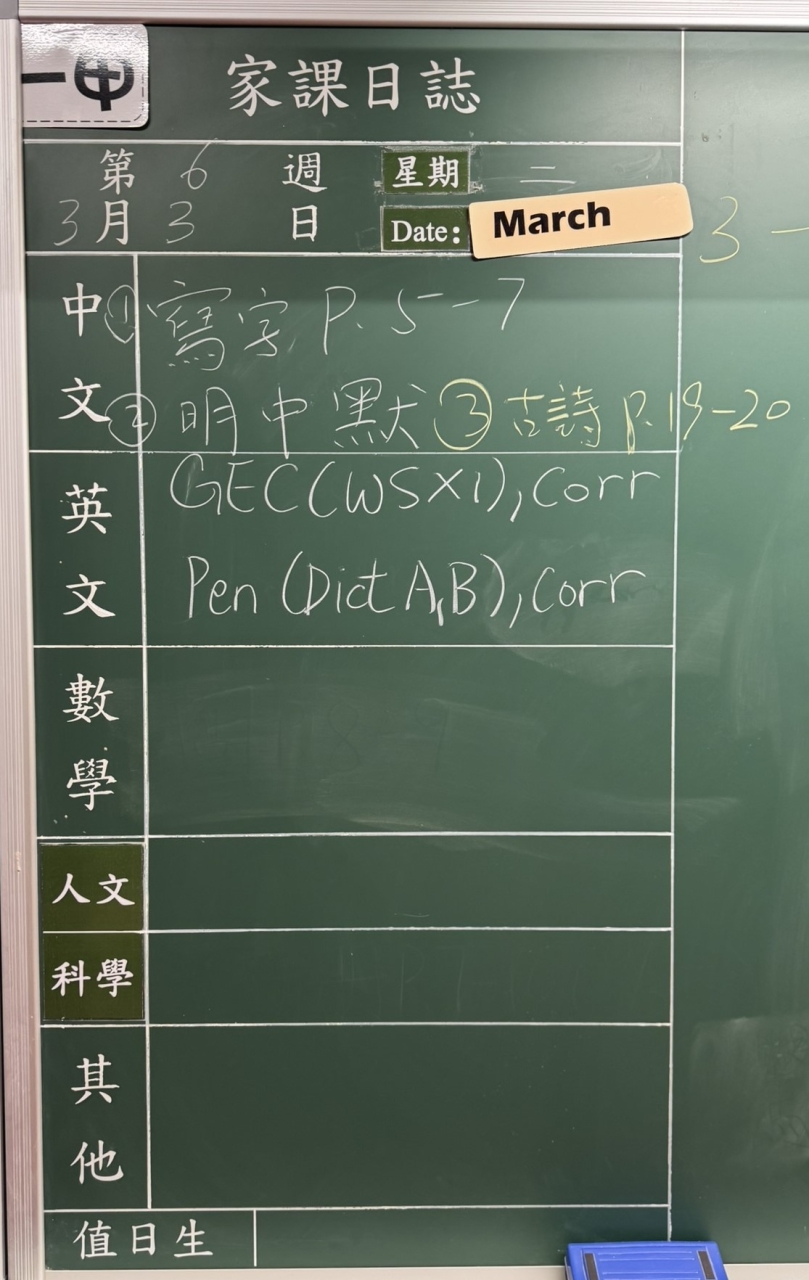 一甲
家課日誌
第 6 週 星期 二
3月 3 日 Date: March 3
中文 ① 寫字 P. 5-7
② 明中默 ③ 古詩 p.19-20
英文 GEC(WS×1), Corr
Pen (Dict A,B), Corr
數學
人文
科學
其他
值日生